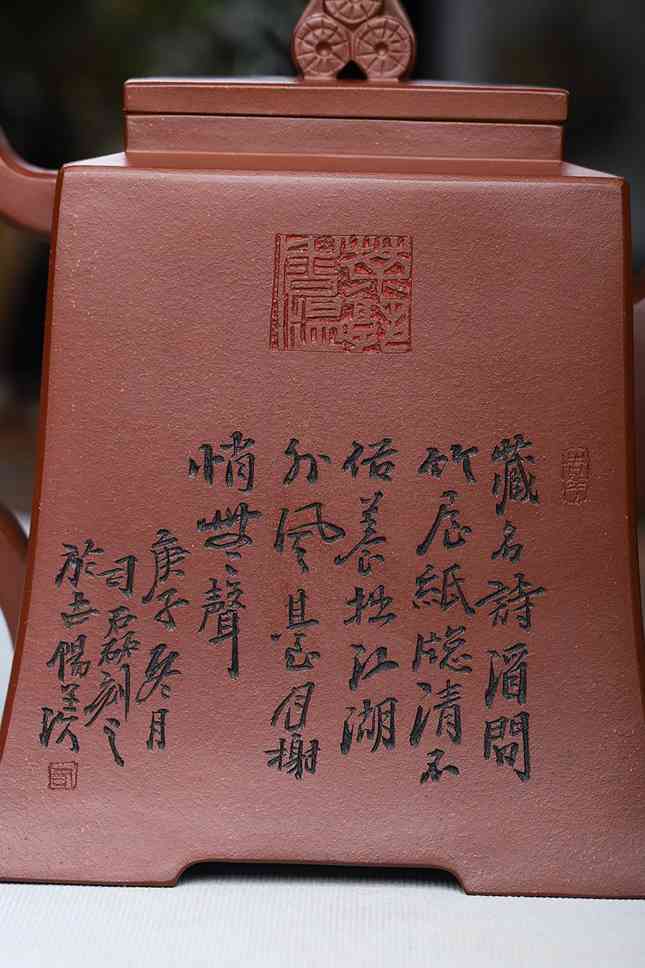 藏名詩酒間
竹屋紙牕清不
俗養拙江湖
外風臺月榭
悄無聲
庚子冬月
司石刻之
於古陽羨